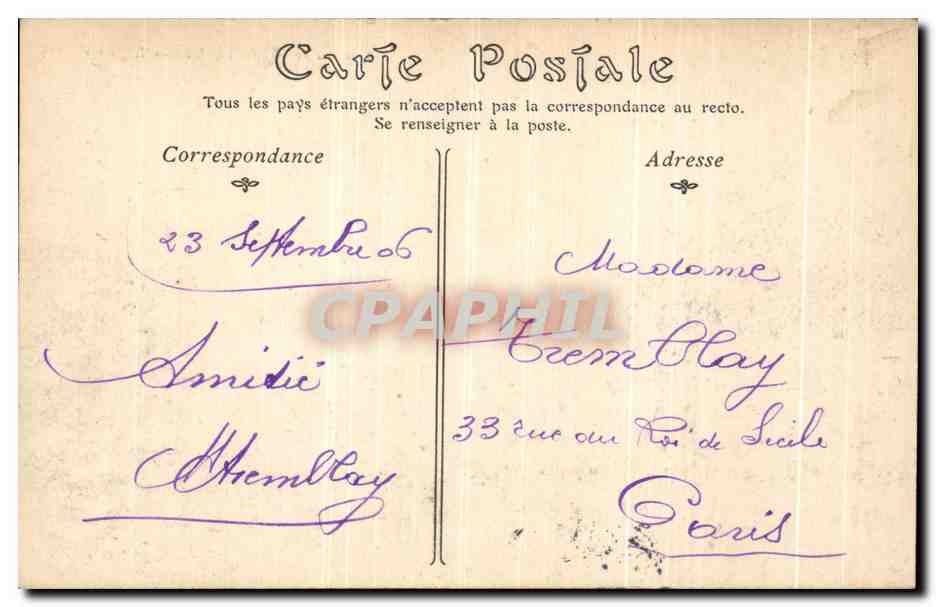 Carte Postale
Tous les pays étrangers n'acceptent pas la correspondance au recto.
Se renseigner à la poste.
Correspondance
23 Septembre 06
Amitié
Tremblay
Adresse
Madame
Tremblay
33 rue du Roi de Sicile
Paris
CPAPHIL